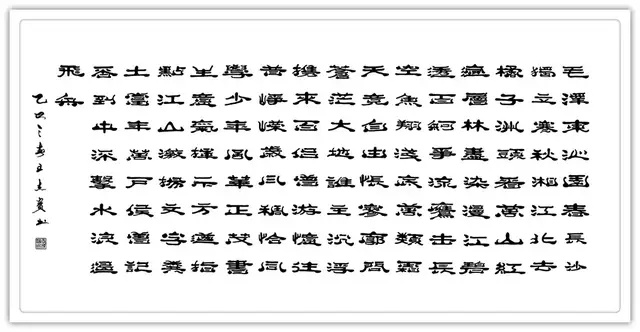 毛澤東沁園春長沙
獨立寒秋湘江北去
橘子洲頭看萬山紅
遍層林盡染漫江碧
透百舸爭流鷹擊長
空魚翔淺底萬類霜
天竟自由悵寥廓問
蒼茫大地誰主沉浮
攜來百侶曾游憶往
昔崢嶸歲月稠恰同
學少年風華正茂書
生意氣揮斥方遒指
點江山激揚文字糞
土當年萬戶侯曾記
否到中流擊水浪遏
飛舟
乙巳之春